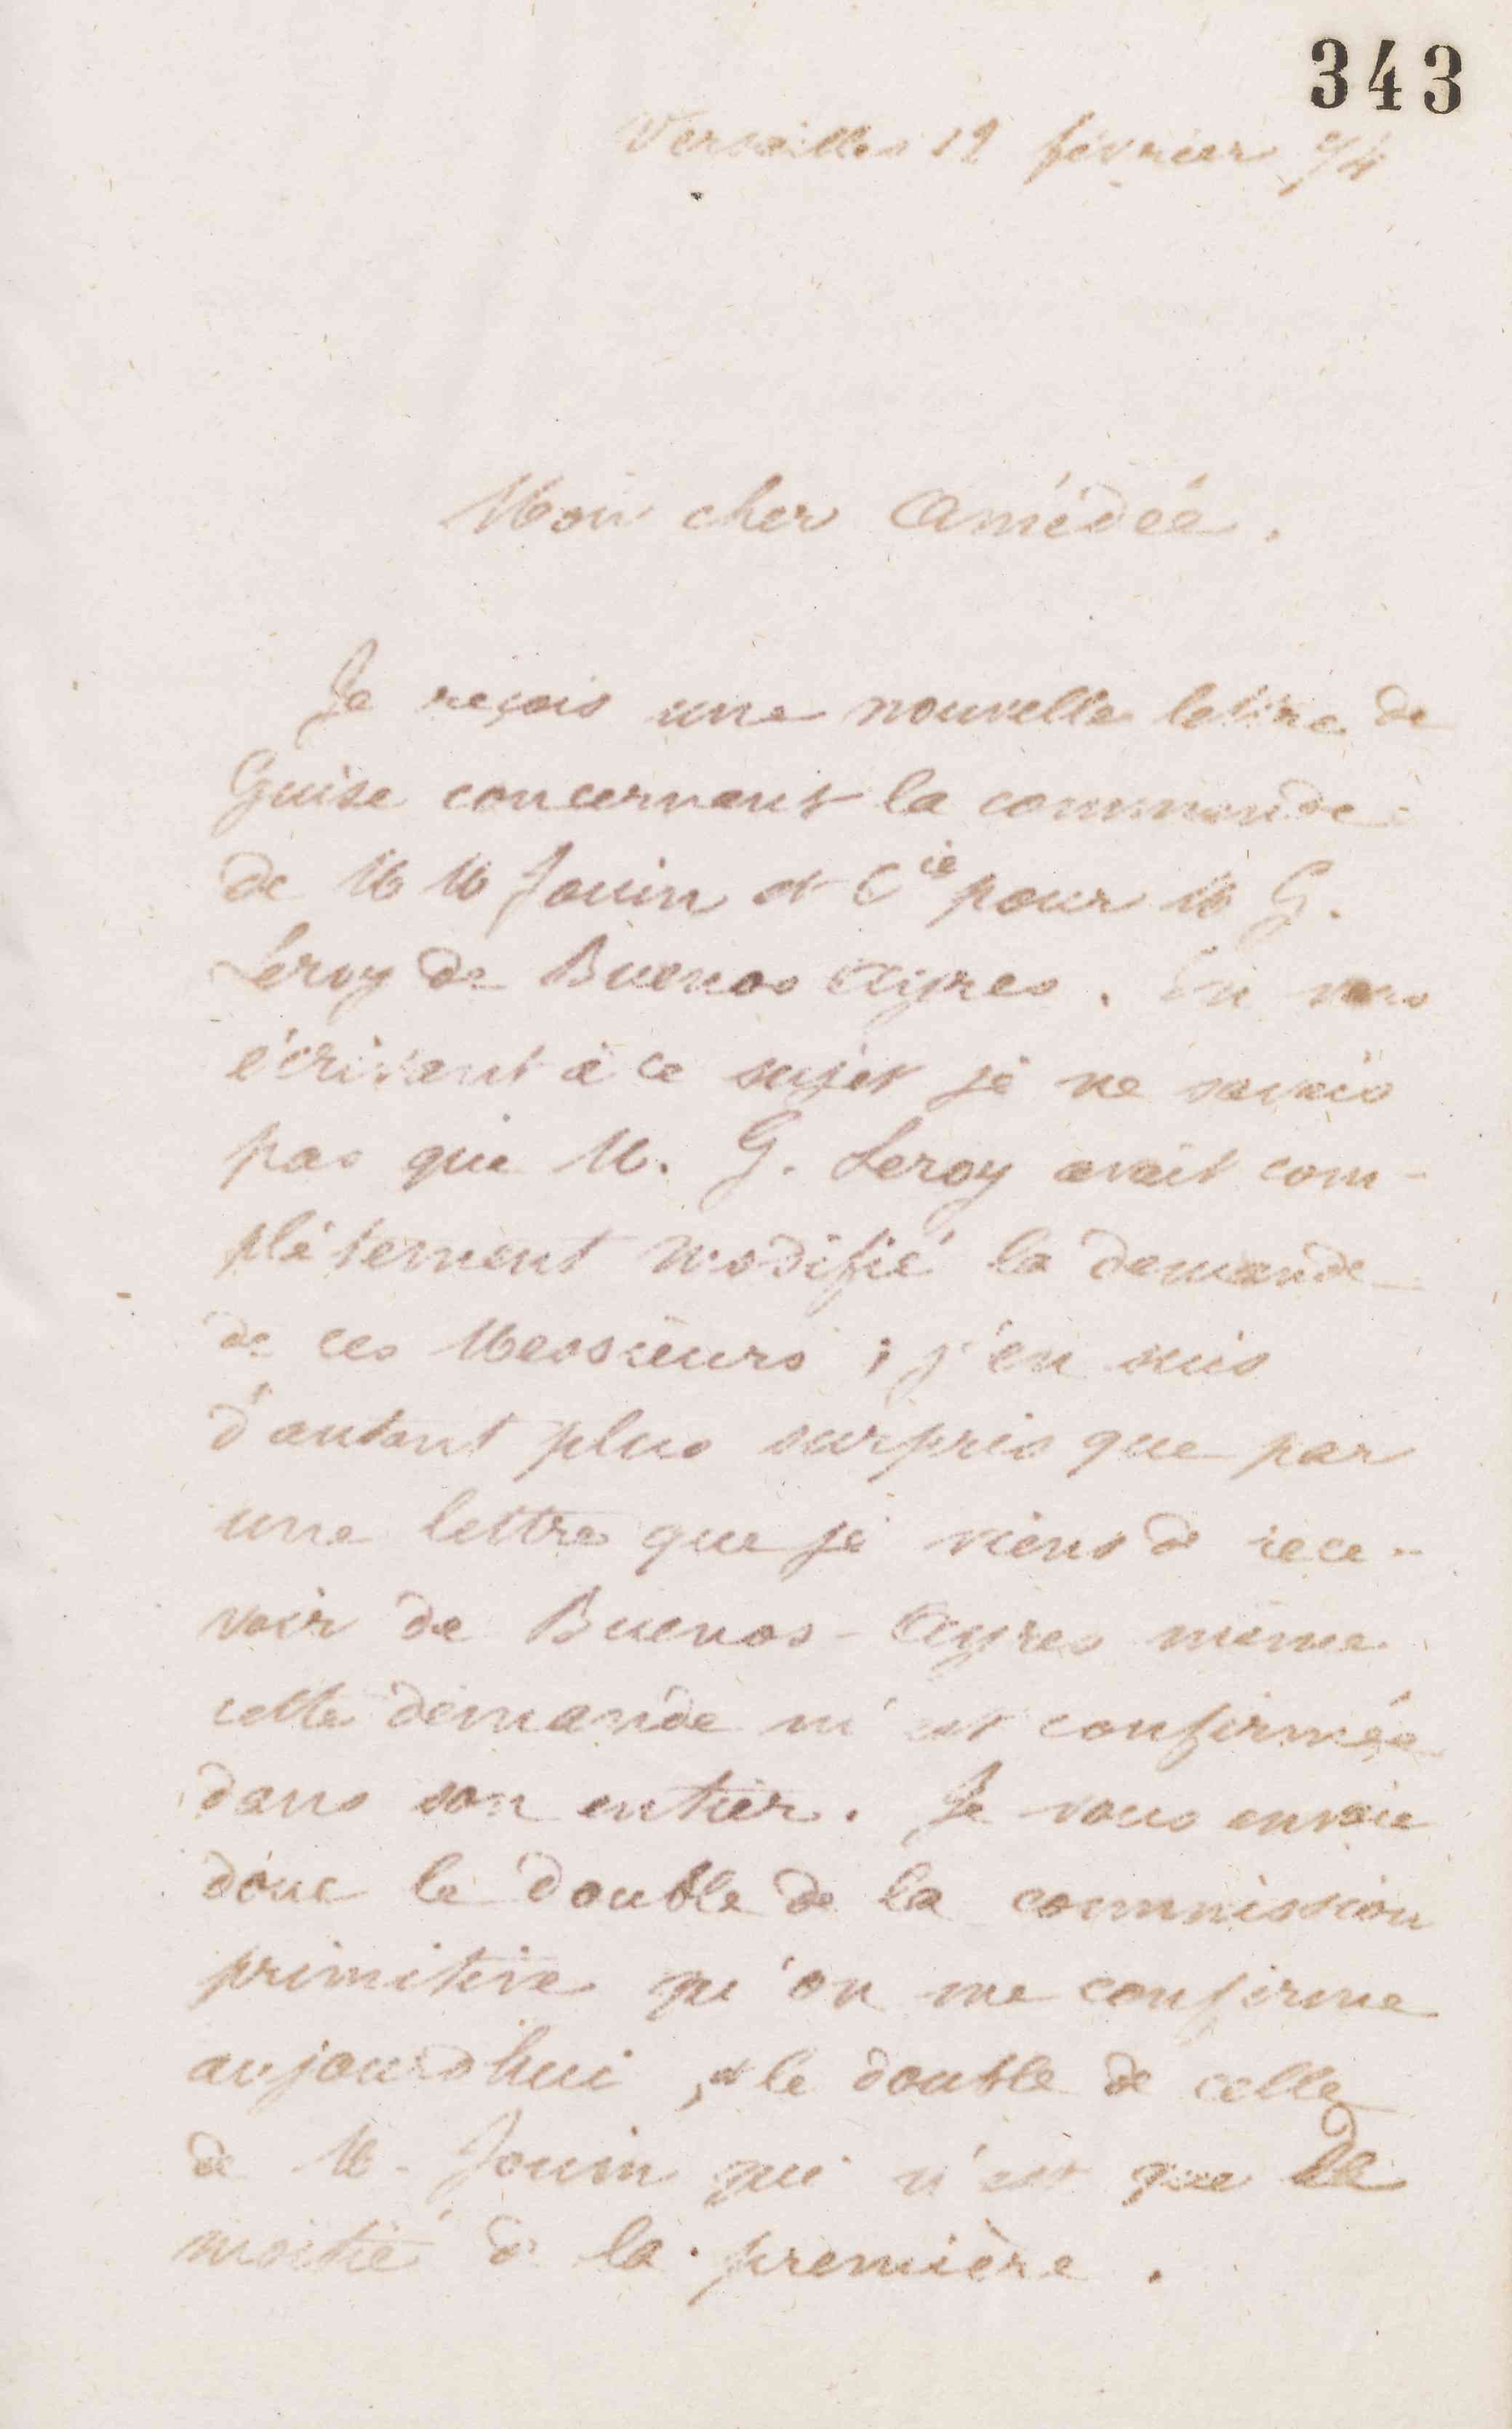 343
Versailles 12 février 74
Mon cher Amédée.
Je reçois une nouvelle lettre de
Guise concernant la commande
de MM Jouin et Cie pour M G.
Leroy de Buenos Ayres. En vous
écrivant à ce sujet je ne savais
pas que M. G. Leroy avait com-
plètement modifié la demande
de ces Messieurs ; j'en suis
d'autant plus surpris que par
une lettre que je viens de rece-
voir de Buenos-Ayres même
cette demande m'est confirmée
dans son entier. Je vous envoie
donc le double de la commission
primitive qu'on me confirme
aujourd'hui, et le double de celle
de M. Jouin qui n'est que la
moitié de la première.